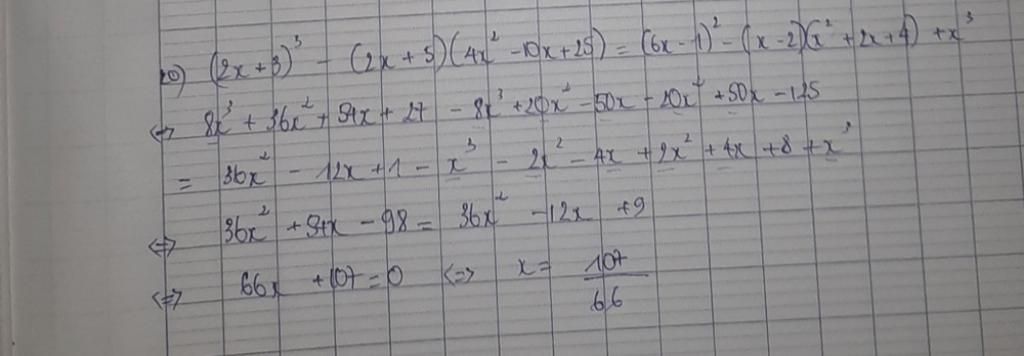 10) (2x + 3)³ - (2x + 5)(4x² - 10x + 25) = (6x - 1)² - (x - 2)(x² + 2x + 4) + x³
⇔ 8x³ + 36x² + 54x + 27 - 8x³ + 20x² - 50x - 20x² + 50x - 125
= 36x² - 12x + 1 - x³ - 2x² - 4x + 2x² + 4x + 8 + x³
⇔ 36x² + 54x - 98 = 36x² - 12x + 9
⇔ 66x + 107 = 0 ⇔ x = 107/66